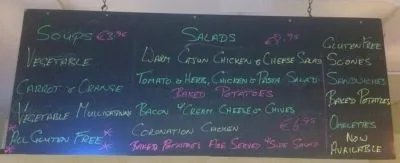 Soups €3.95
Vegetable
Carrot & Orange
Vegetable Mulligatawny
*All Gluten Free*
Salads €8.95
Warm Cajun Chicken & Cheese Salad
Tomato & Herb, Chicken & Pasta Salad
Baked Potatoes
Bacon & Cream Cheese & Chives
Coronation Chicken €6.95
Baked Potatoes Are Served w Side Salad
Gluten Free
Scones
Sandwiches
Baked Potatoes
Omelettes
Now
Available